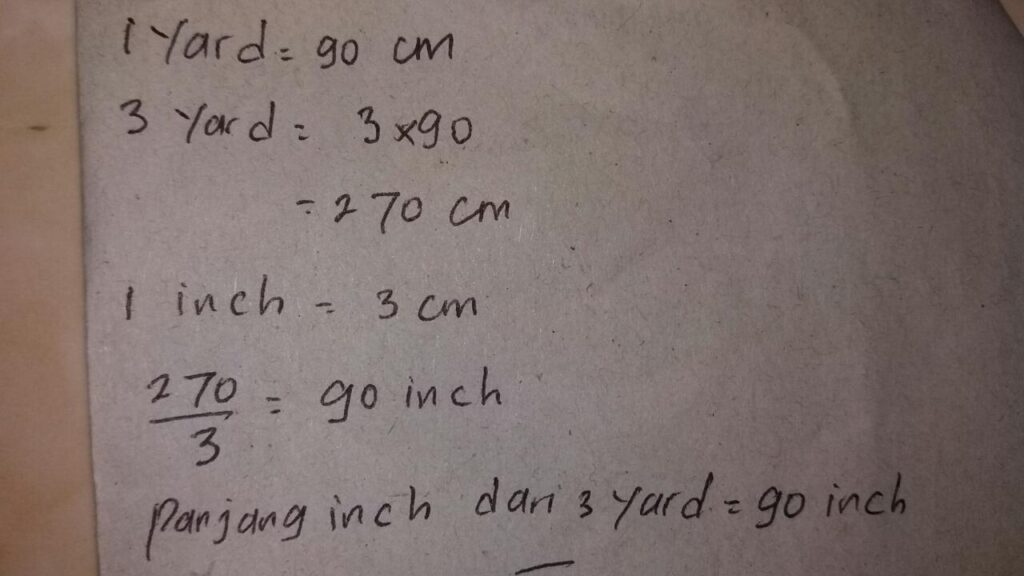 1 Yard = 90 cm
3 Yard = 3 x 90
= 270 cm
1 inch = 3 cm
270
3 = 90 inch
Panjang inch dari 3 Yard = 90 inch